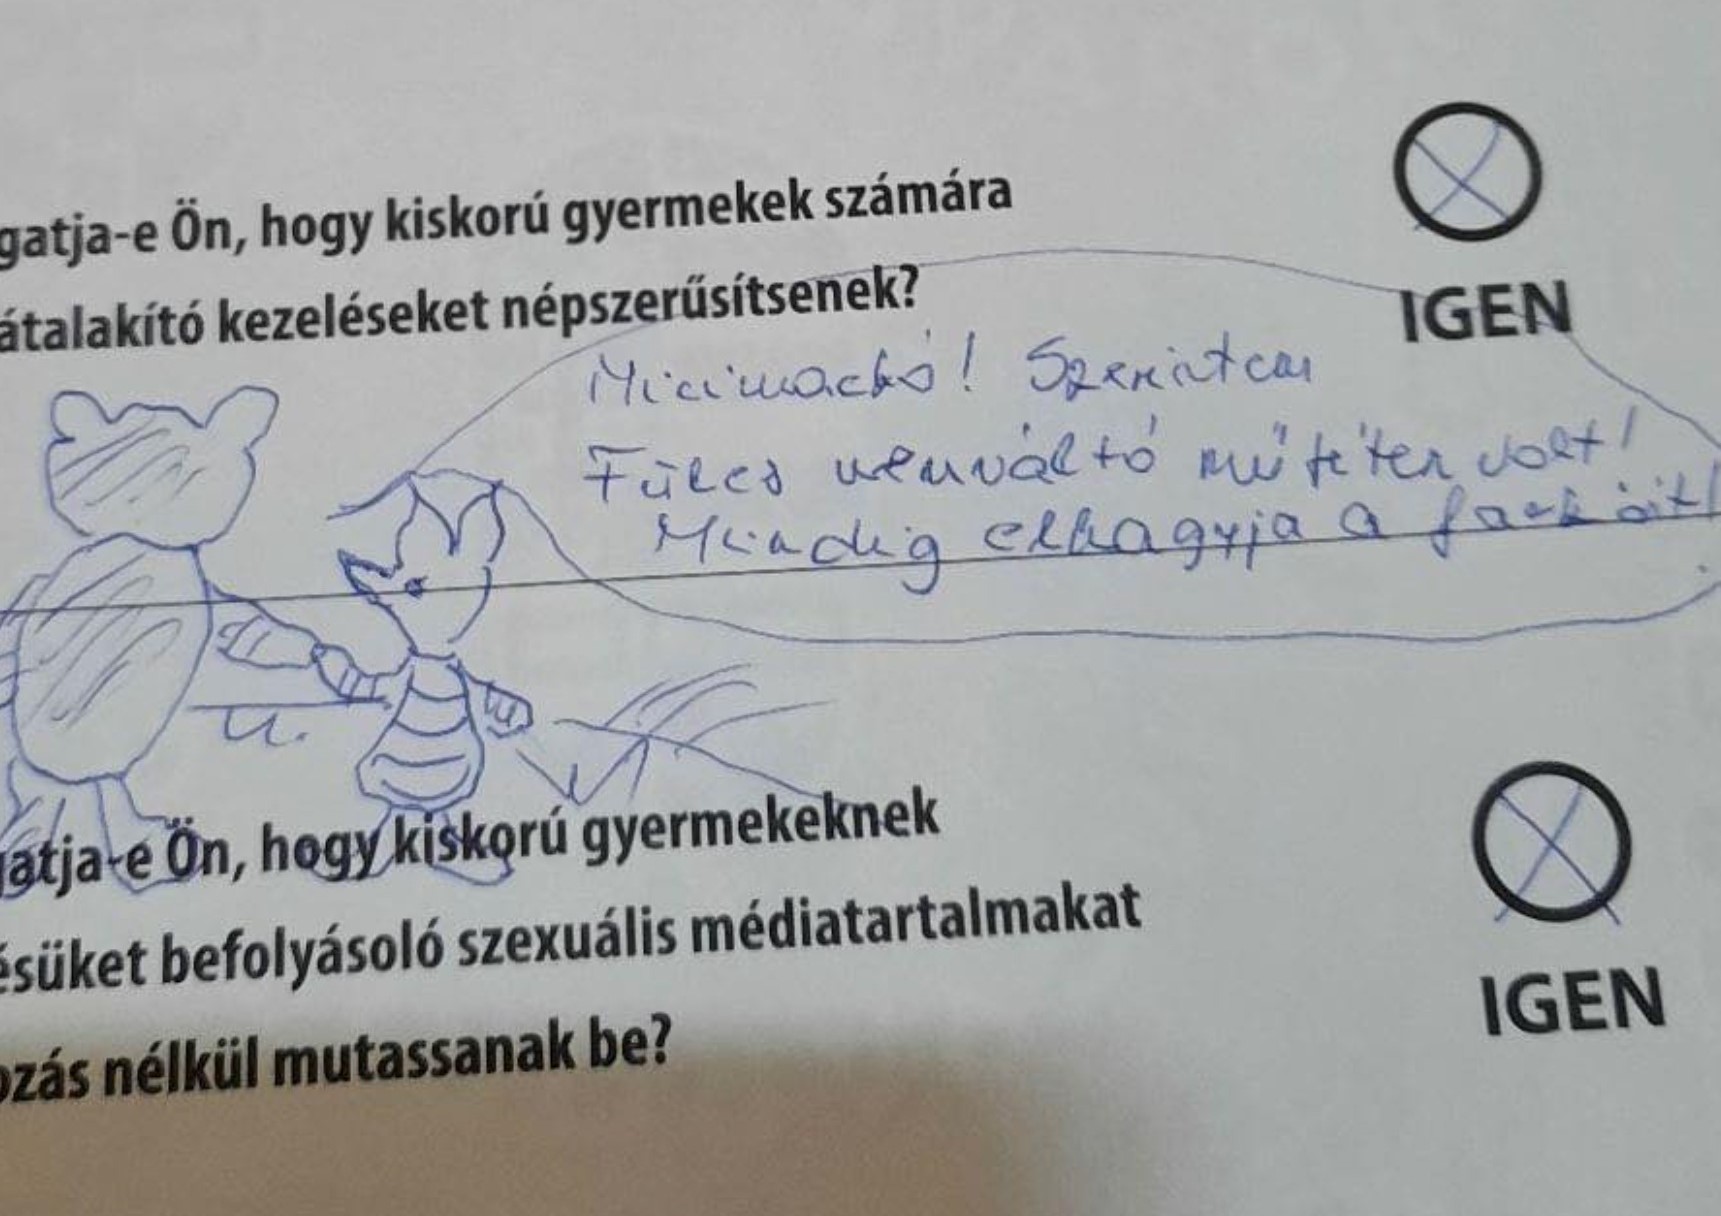 gatja-e Ön, hogy kiskorú gyermekek számára
átalakító kezeléseket népszerűsítsenek?
IGEN
Micimackó! Szerintem
Füles nemváltó műtéten volt!
Mindig elhagyja a farkát!
gatja-e Ön, hogy kiskorú gyermekeknek
ésüket befolyásoló szexuális médiatartalmakat
ozás nélkül mutassanak be?
IGEN